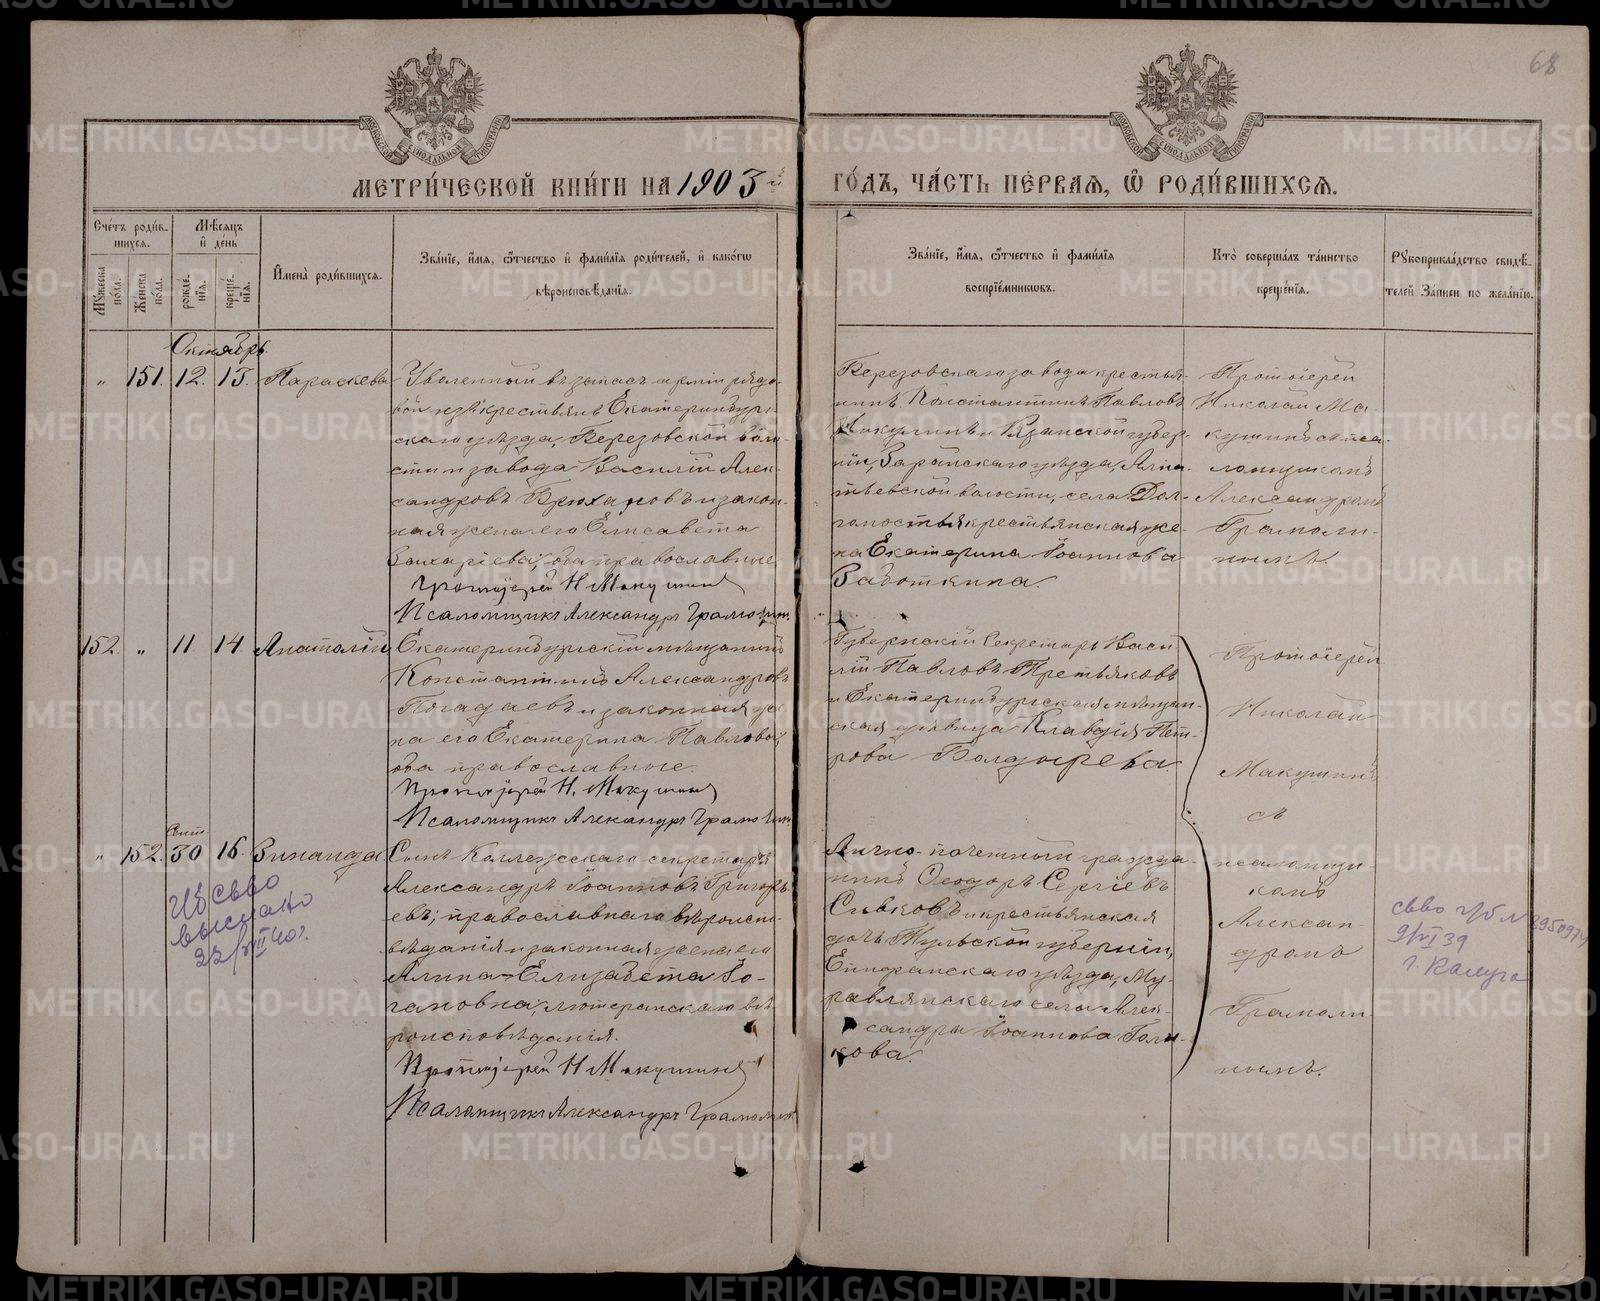 68
МЕТРИ́ЧЕСКОЙ КНИ́ГИ НА 1903 й
ГО́ДЪ, ЧА́СТЬ ПЕ́РВАЯ, Ѽ РОДИ́ВШИХСЯ.
Сче́тъ роди́в-
шихся.
Мꙋ́жеска по́ла.
Же́нска по́ла.
Мѣ́сяцъ
и҆ де́нь
рожде́-
нїя.
креще́-
нїя.
И҆мена̀ роди́вшихся.
Зва́нїе, и҆́мя, ѻ҆́тчество и҆ фами́лїя роди́телей, и҆ како́гѡ
вѣроисповѣ́данїя.
Зва́нїе, и҆́мя, ѻ҆́тчество и҆ фами́лїя
воспрїе́мникѡвъ.
Кто̀ соверша́лъ та́инство
креще́нїя.
Рꙋкоприкла́дство свидѣ́-
телей за́писи по жела́нїю.
Октябрь
„ 151. 12. 13. Параскева
Уволенный въ запасъ армiи рядо-
вой изъ крестьянъ Екатеринбург-
скаго уѣзда, Березовской воло-
сти и завода Василiй Алек-
сандровъ Брюхановъ и закон-
ная жена его Елисавета
Захарiева; оба православные.
Протоiерей Н. Макушинъ
Псаломщикъ Александръ Грамолинъ
Березовскаго завода крестья-
нинъ Константинъ Павловъ
Никулинъ и Рязанской губер-
нiи, Зарайскаго уѣзда,
села Дол-
крестьянская же-
на Екатерина Iоаннова
Заботкина.
Протоiерей
Николай Ма-
кушинъ съ пса-
ломщикомъ
Александромъ
Грамоли-
нымъ.
152. „ 11 14 Анатолiй
Екатеринбургскiй мѣщанинъ
Константинъ Александровъ
Погадаевъ и законная же-
на его Екатерина Павлова;
оба православные.
Протоiерей Н. Макушинъ
Псаломщикъ Александръ Грамолинъ
Губернскiй Секретарь Васи-
лiй Павловъ Третьяковъ
и Екатеринбургская мѣщан-
ская дѣвица Клавдiя Пет-
рова Болдырева.
Протоiерей
Николай
Макушинъ
съ
псаломщи-
комъ
Алексан-
дромъ
Грамоли-
нымъ.
Сент.
„ 152. 30 16. Зинаида
Сынъ Коллежскаго секретаря
Александръ Iоанновъ Григорь-
евъ; православнаго вѣроиспо-
вѣданiя и законная жена его
Алина-Елизабета Iо-
гановна, лютеранскаго вѣ-
роисповѣданiя.
Протоiерей Н Макушинъ
Псаломщикъ Александръ Грамолинъ
Лично-почетный гражда-
нинъ Ѳеодоръ Сергiевъ
Сивковъ и крестьянская
дочь Тульской губернiи,
Епифанскаго уѣзда, Му-
равлянскаго села Алек-
сандра Iоаннова Голи-
кова.
св-во
выслано
22/VII 40г.
св-во
9/VI 39
г. Калуга
METRIKI.GASO-URAL.RU